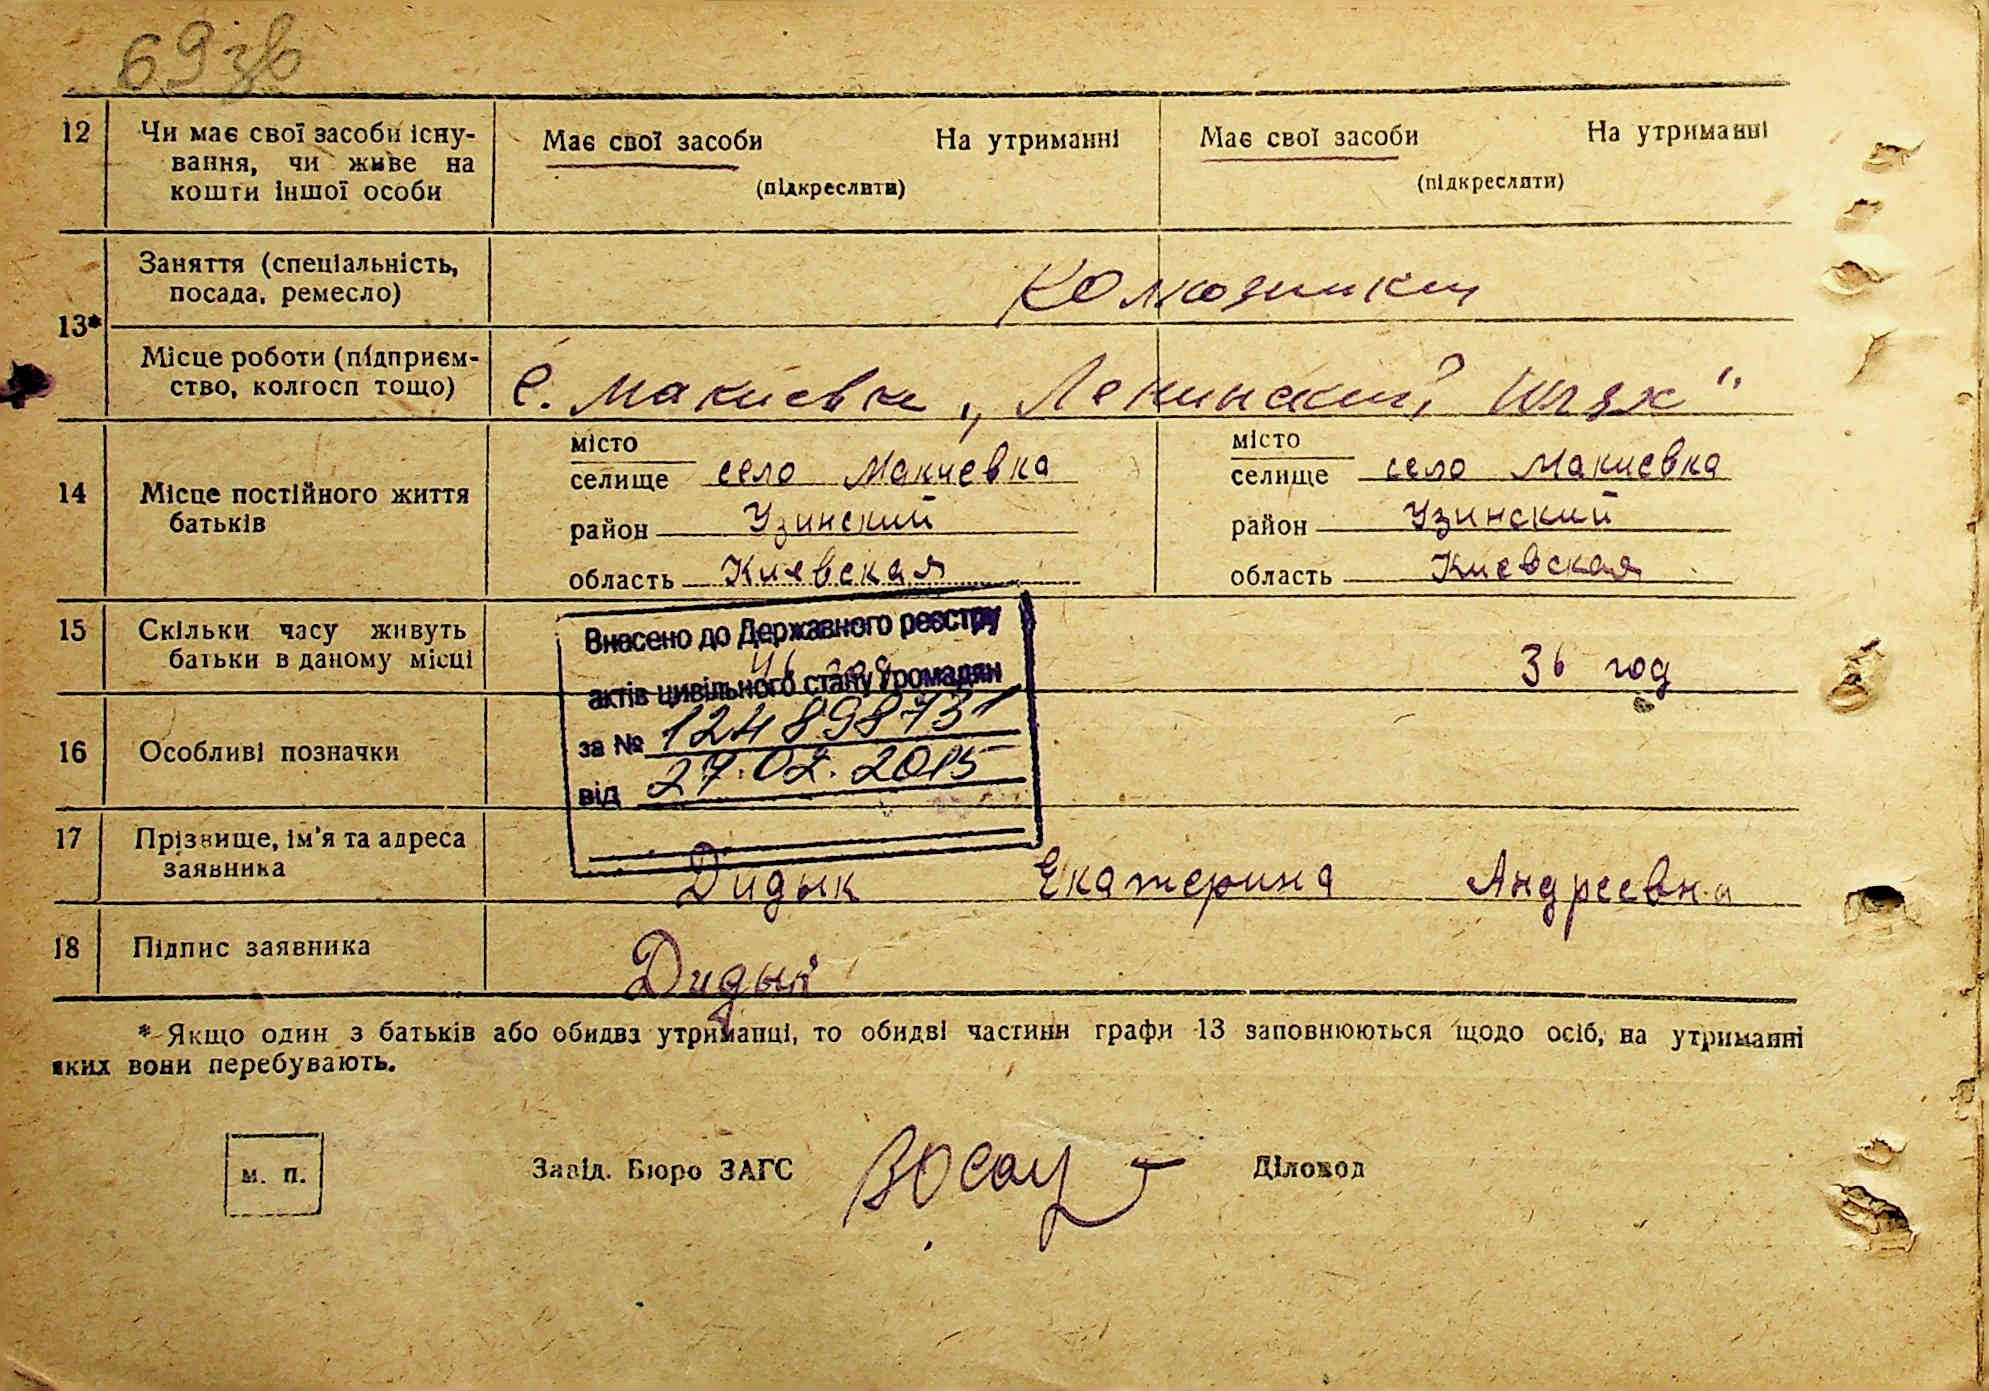 69 зв
12 Чи має свої засоби існу- Має свої засоби На утриманні Має свої засоби На утриманні
вання, чи живе на (підкреслити) (підкреслити)
кошти іншої особи
13* Заняття (спеціальність,
посада, ремесло) Колхозники
Місце роботи (підприєм-
ство, колгосп тощо) С. Макиевка „Ленинский Шлях"
14 Місце постійного життя
батьків
місто місто
селище село Макиевка селище село Макиевка
район Узинский район Узинский
область Киевская область Киевская
15 Скільки часу живуть
батьки в даному місці 36 год
Внесено до Державного реєстру
актів цивільного стану громадян
за № 124898731
від 27.02.2015
16 Особливі позначки
17 Прізвище, ім'я та адреса
заявника Дидык Екатерина Андреевна
18 Підпис заявника Дидык
* Якщо один з батьків або обидва утриманці, то обидві частини графи 13 заповнюються щодо осіб, на утриманні
яких вони перебувають.
м. п. Завід. Бюро ЗАГС Діловод